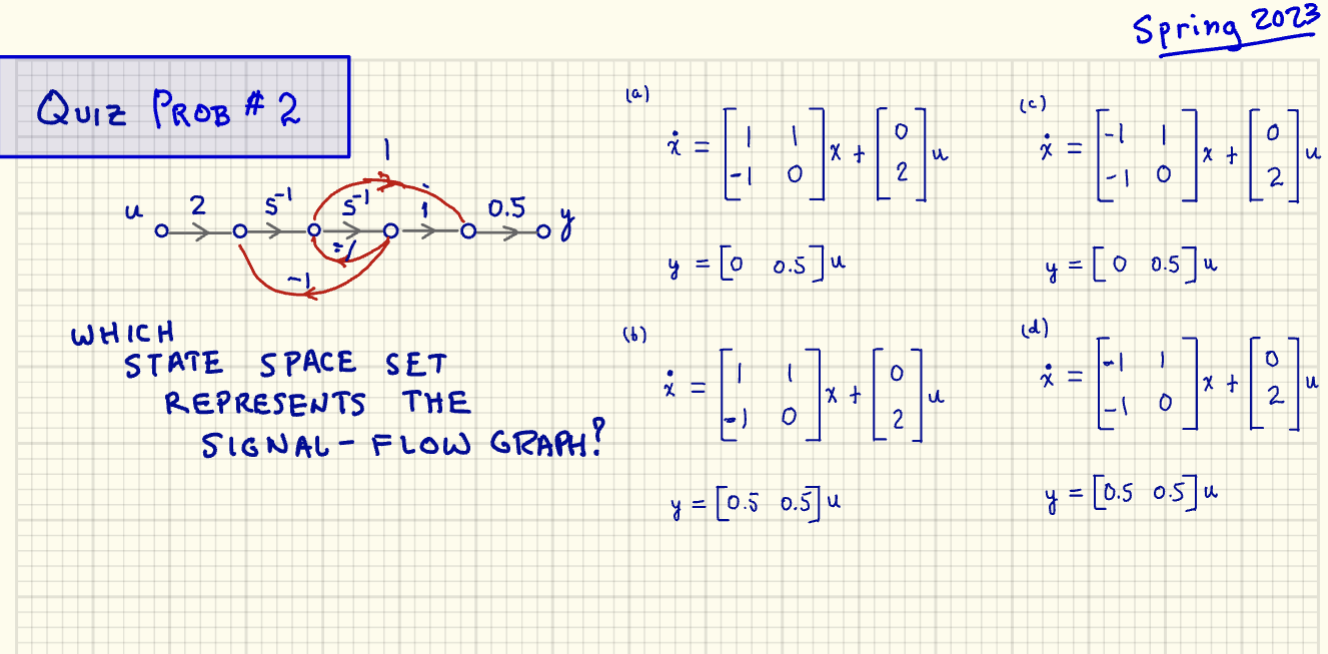 Spring 2023
QUIZ PROB # 2
1
u 2 s⁻¹ s⁻¹ 1 0.5 y
-1
-1
WHICH
STATE SPACE SET
REPRESENTS THE
SIGNAL-FLOW GRAPH?
(a)
ẋ = [1 1; -1 0] x + [0; 2] u
y = [0 0.5] u
(b)
ẋ = [1 1; -1 0] x + [0; 2] u
y = [0.5 0.5] u
(c)
ẋ = [-1 1; -1 0] x + [0; 2] u
y = [0 0.5] u
(d)
ẋ = [-1 1; -1 0] x + [0; 2] u
y = [0.5 0.5] u